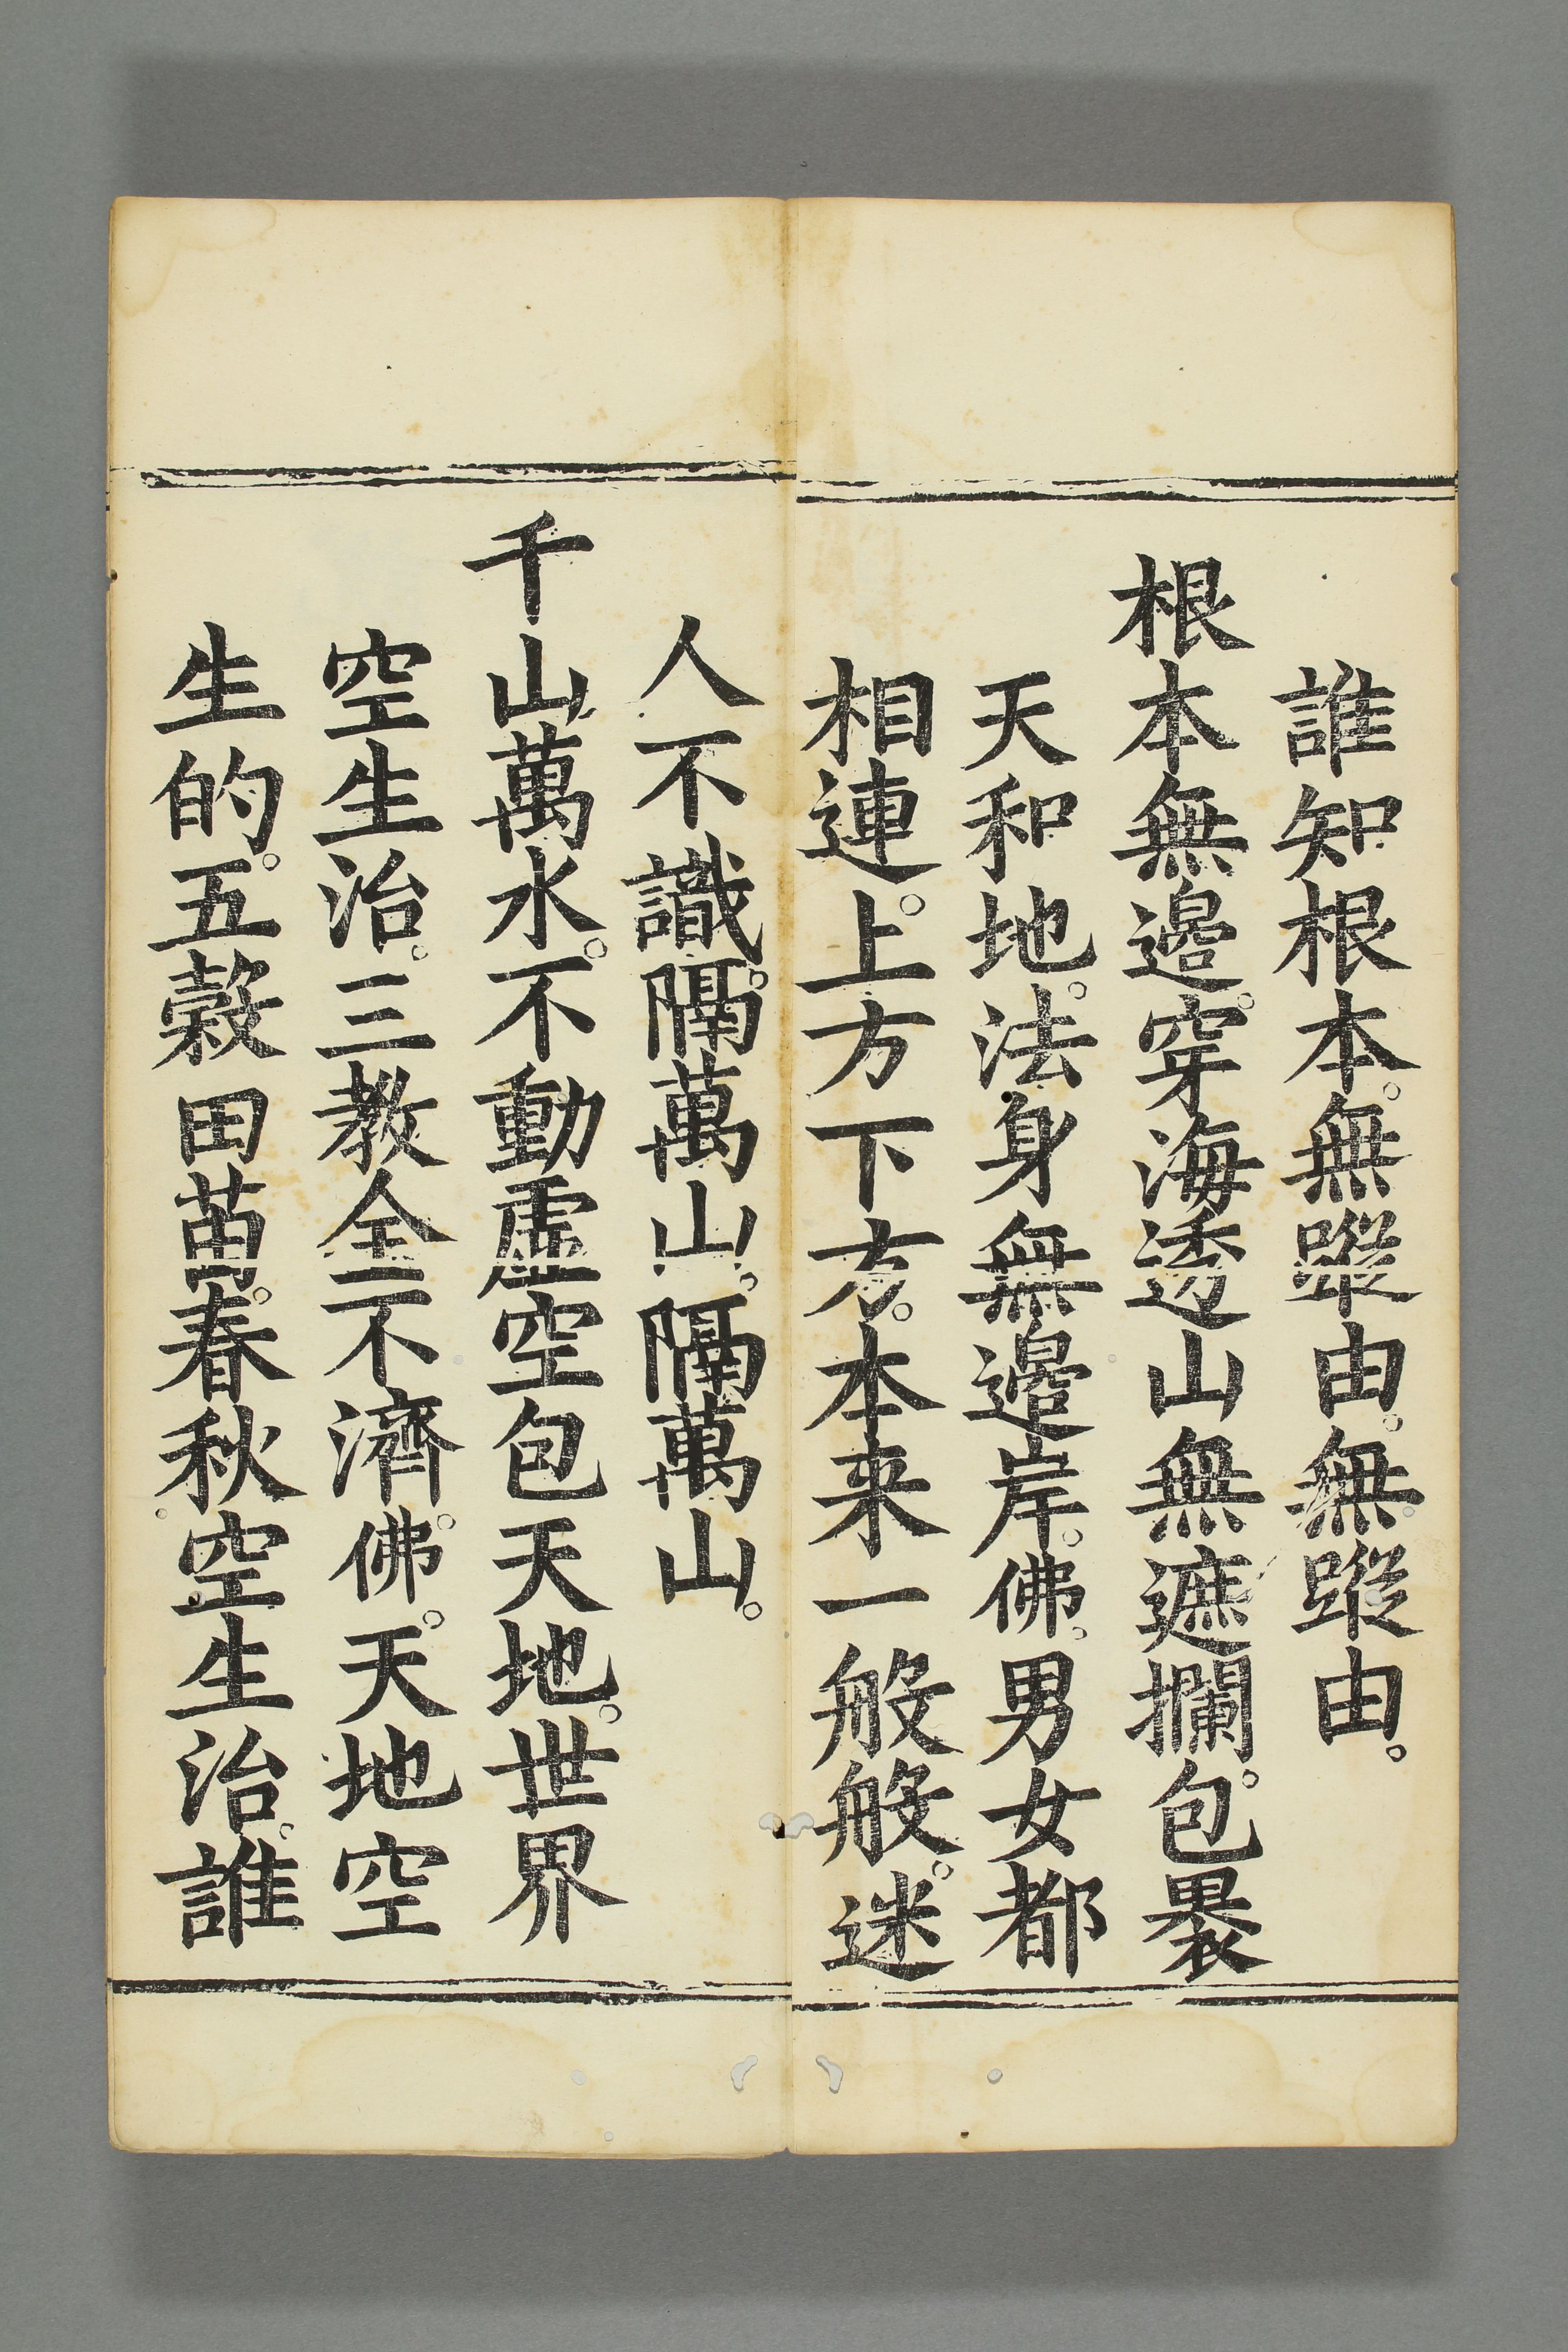 誰知根本。無蹤由。無蹤由。
根本無邊。穿海透山無遮攔。包褁
天和地。法身無邊岸。佛。男女都
相連。上方下方。本来一般般。迷
人不識。隔萬山。隔萬山。
千山萬水。不動虛空包天地。世界
空生治。三教全不濟。佛。天地空
生的。五穀田苗。春秋空生治。誰